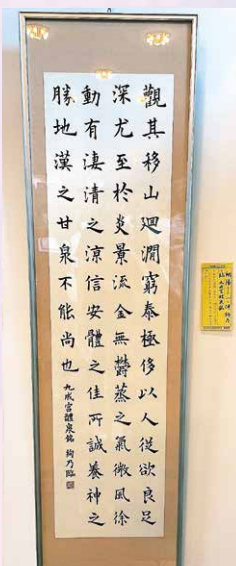 觀其移山迴澗窮泰極侈以人從欲良足
深尤至於炎景流金無鬱蒸之氣微風徐
動有淒清之涼信安體之佳所誠養神之
勝地漢之甘泉不能尚也
九成宮醴泉銘 絢乃臨